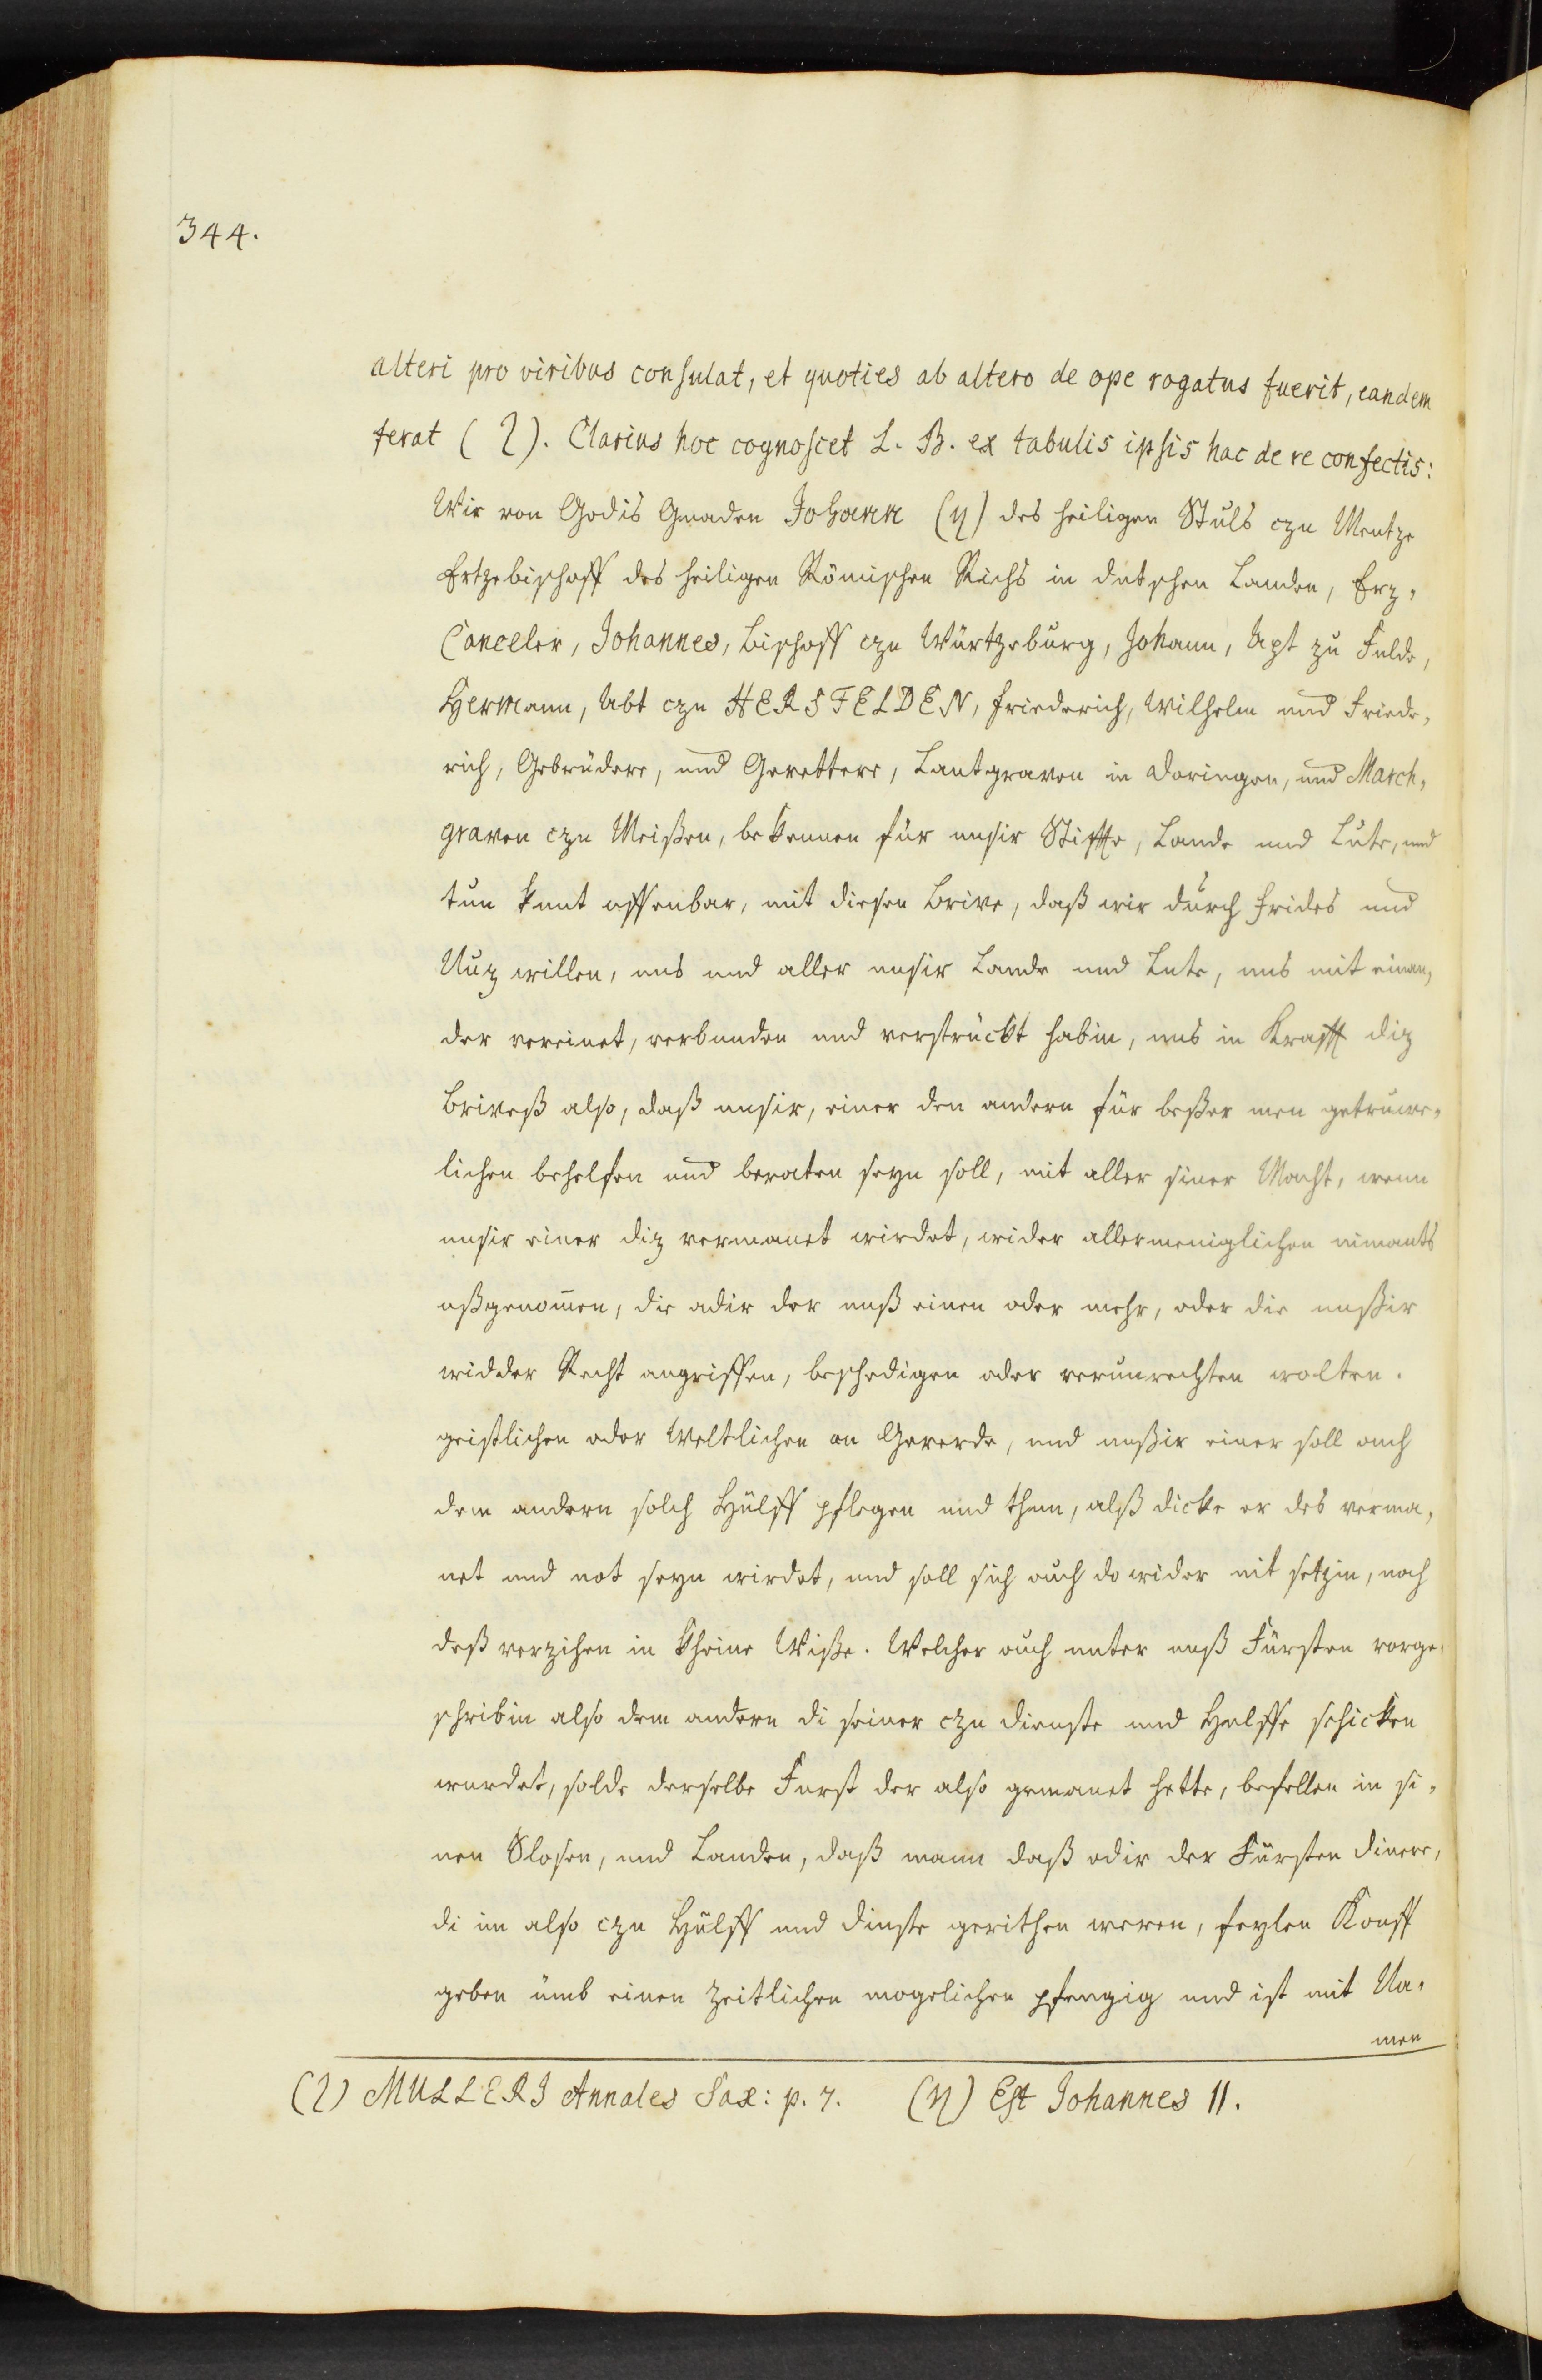 344.
alteri pro viribus consulat, et quoties ab altero de ope rogatus fuerit, eandem
ferat (ζ). Clarius hoc cognoscet L. B. ex tabulis ipsis hac de re confectis:
Wir von Godis Gnaden Johann (η) des heiligen Stuls czu Mentze
Ertzebischoff des heiligen Römischen Richs in dutschen Landen, Erz-
Canceler, Johannes, Bischoff czu Würtzeburg, Johann, Apt zu Fulde,
Hermann, Abt czu HERSFELDEN, Friederich, Wilhelm und Friede-
rich, Gebrüdere, und Gevettere, Lantgraven in Doringen, und March-
graven czu Meißen, bekennen für unsir Stiffte, Lande und Lute, und
tun kunt offenbar, mit diesen Brive, daß wir durch Frides und
Nuz willen, uns und aller unsir Lande und Lute, uns mit einan-
der vereinet, verbunden und verstrückt habin, uns in Krafft diz
Briveß also, daß unsir, einer den andern für beßer men getruwe-
lichen behelfen und beraten seyn soll, mit aller siner Macht, wenn
unsir einer diz vermanet wirdet, wider allermeniglichen nimants
ußgenom̄en, die adir der unß einen oder mehr, oder die unßir
widder Recht angriffen, beschedigen oder verunrechten wolten.
geistlichen oder Weltlichen an Geverde, und unßir einer soll auch
dem andern solch Hülff pflegen und thun, alß dicke er des verma-
net und not seyn wirdet, und soll sich auch do wider nit setzin, noch
deß verzihen in kheine Wiße. Welcher auch unter unß Fürsten vorge-
schribin also dem andern di seiner czu dienste und Hulffe schicken
wurdet, solde derselbe Furst der also gemanet hette, befellen in si-
nen Slosen, und Landen, daß mann daß odir der Fürsten dinere,
di im also czu Hülff und dinste gerithen weren, feylen Kouff
geben ümb einen zeitlichen mogelichen pfengig und ist mit Na-
men
(ζ) MULLERI Annales Sax: p. 7. (η) Est Johannes II.